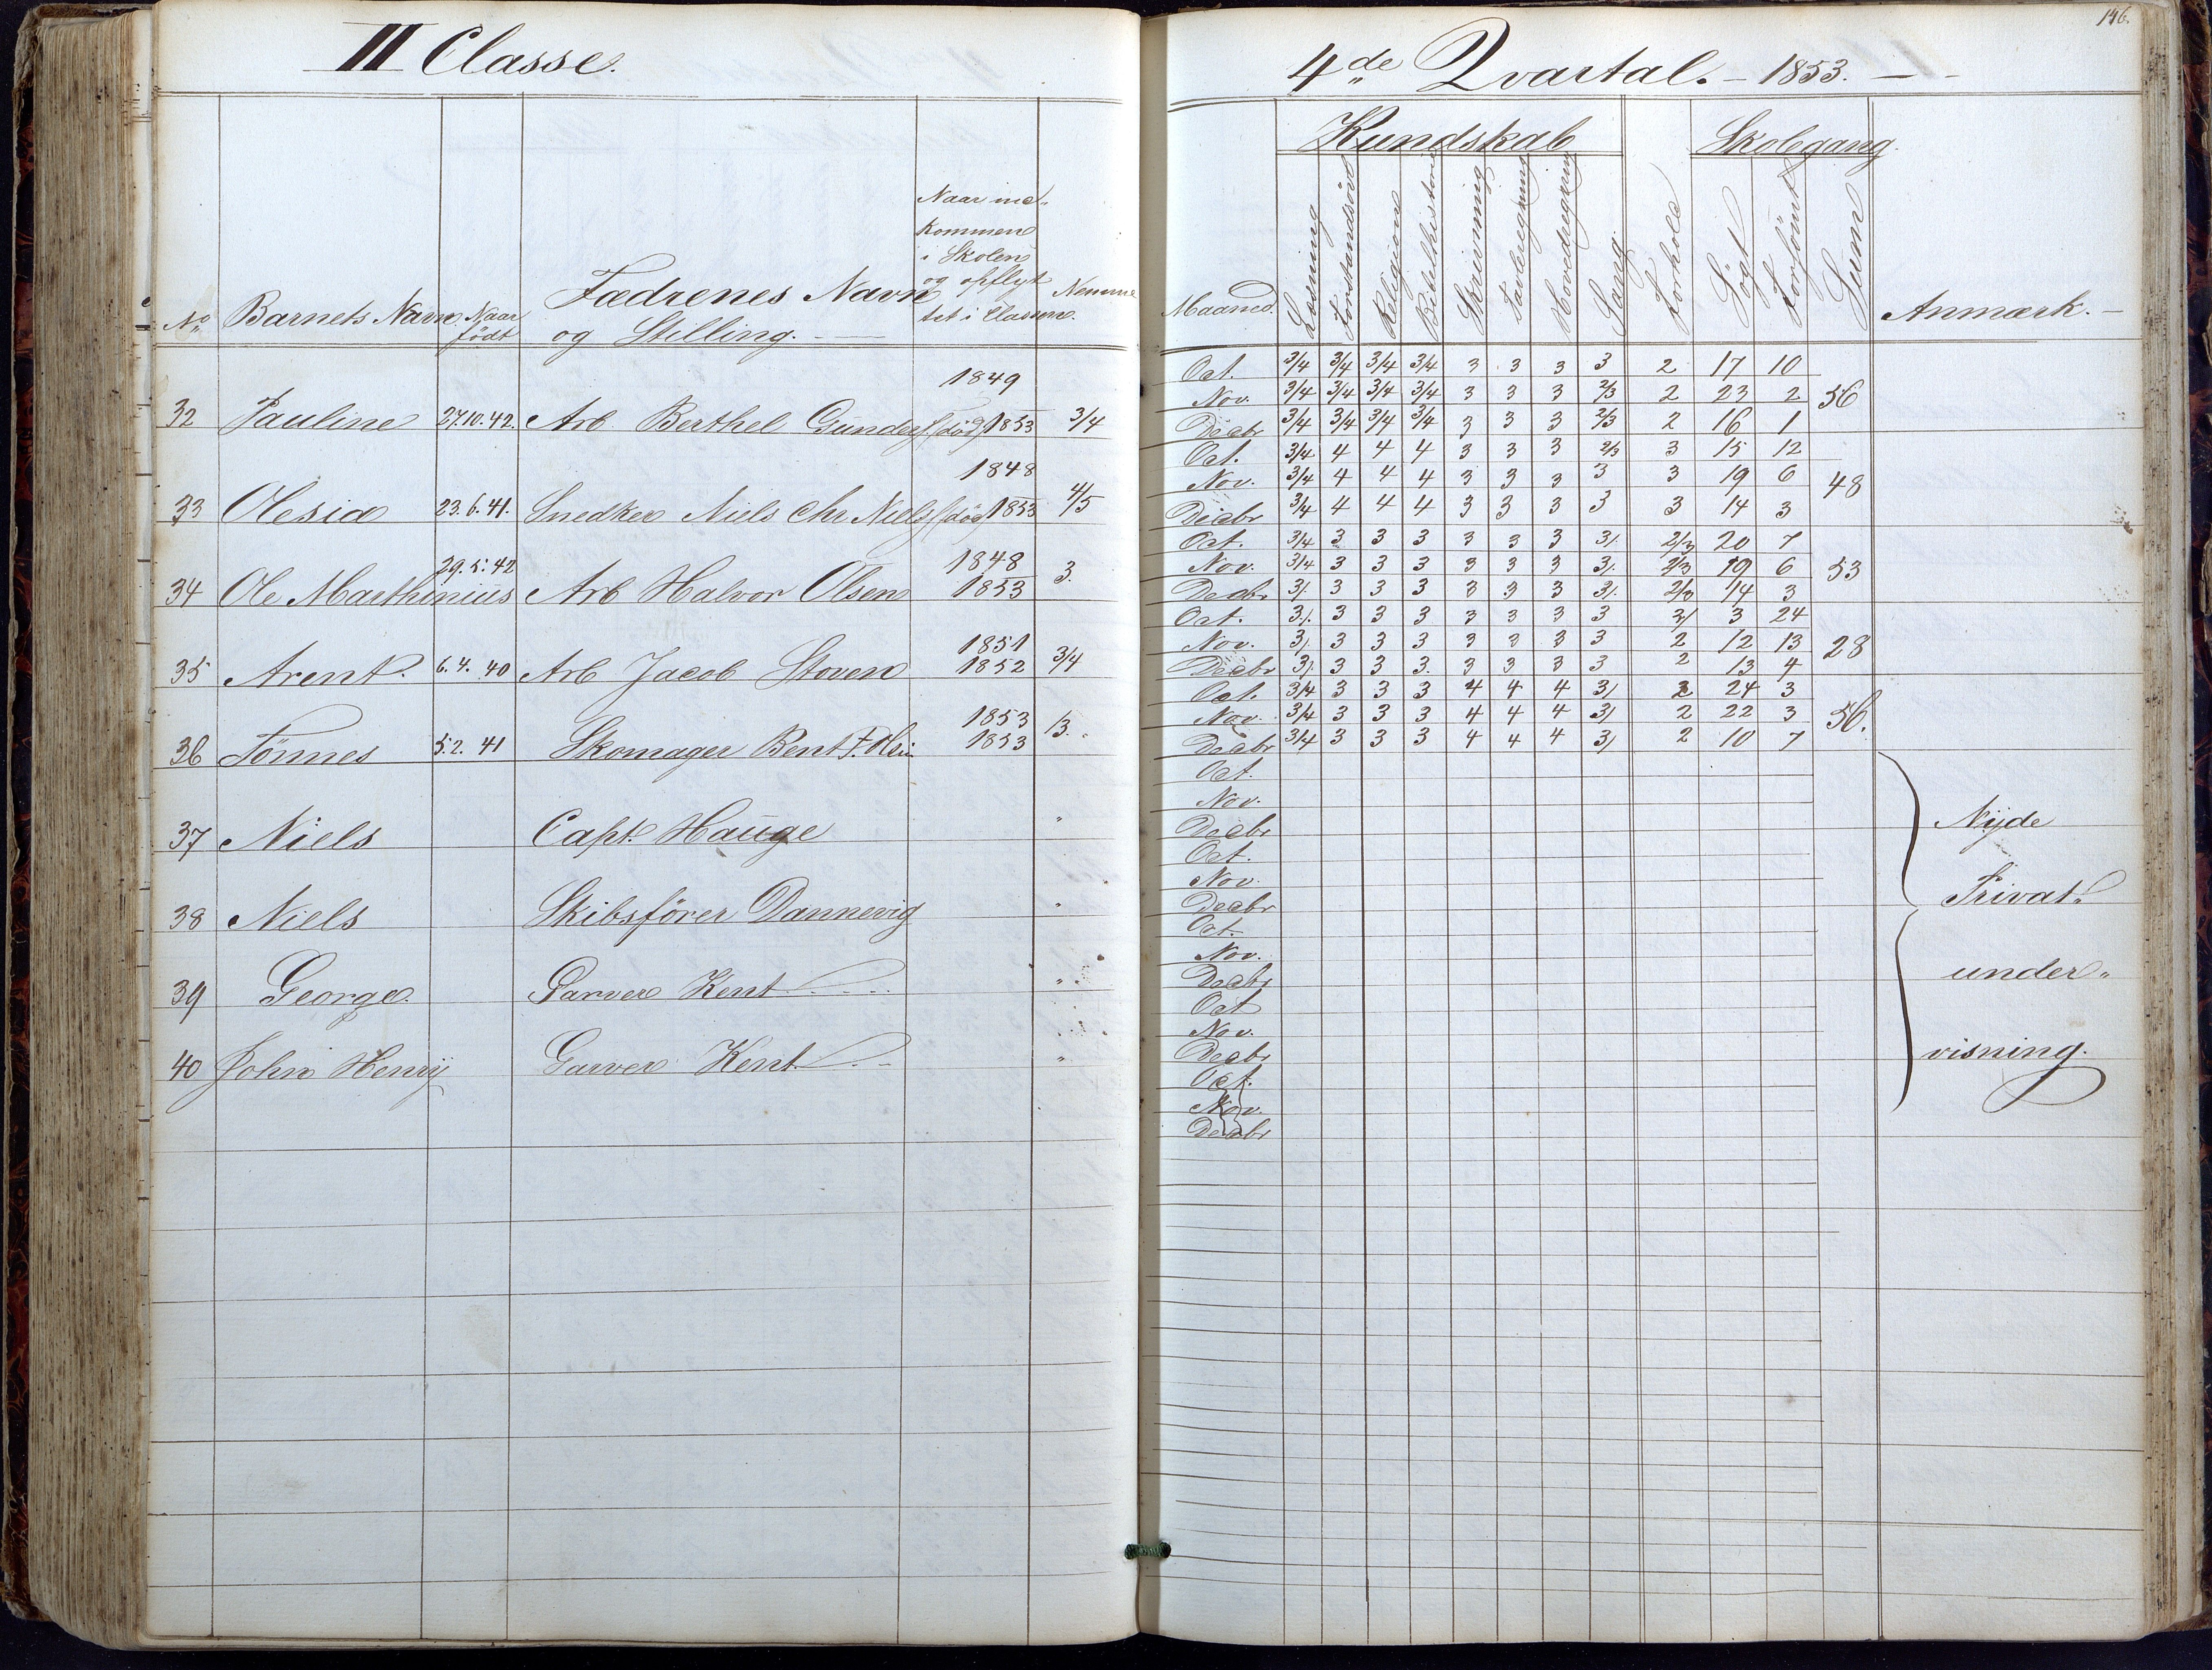 III Classe.
4de Qvartal. – 1853. –
146.
No
Barnets Navn
Naar født
Fædrenes Navn
og Stilling.
Naar ind-
kommen
i Skolen
og opflyt
tet i Classen.
Nemme
Maaned.
Kundskab
Læsning
Forstandsöv
Religion
Bibelhistorie
Skrivning
Tavleregning
Hovedregning
Sang
Forhold
Skolegang
Sögt
Forsömt
Sum
Anmærk. –
32 Pauline 27.10.42. Arb Berthel Gunders (död) 1849 1853 3/4
Oct. 3/4 3/4 3/4 3/4 3 3 3 3 2 17 10
Nov. 3/4 3/4 3/4 3/4 3 3 3 2/3 2 23 2 56
Decbr 3/4 3/4 3/4 3/4 3 3 3 2/3 2 16 1
33 Olesia 23.6.41. Snedker Niels Chr Niels (död) 1848 1853 4/5
Oct. 3/4 4 4 4 3 3 3 2/3 3 15 12
Nov. 3/4 4 4 4 3 3 3 3 3 19 6 48
Decbr 3/4 4 4 4 3 3 3 3 3 14 3
34 Ole Marthinius 29.5.42 Arb Halvor Olsen 1848 1853 3.
Oct. 3/4 3 3 3 3 3 3 3/. 2/3 20 7
Nov. 3/4 3 3 3 3 3 3 3/. 2/3 19 6 53
Decbr 3/. 3 3 3 3 3 3 3/. 2/3 14 3
35 Arent. 6.4.40 Arb Jacob Stoven 1851 1852 3/4
Oct. 3/. 3 3 3 3 3 3 3 2/ 3 24
Nov. 3/. 3 3 3 3 3 3 3 2 12 13 28
Decbr 3/. 3 3 3. 3 3 3 3 2 13 4
36 Tönnes 5.2.41 Skomager Bent T. Olsen 1853 1853 /3.
Oct. 3/4 3 3 3 4 4 4 3/ 2 24 3
Nov. 3/4 3 3 3 4 4 4 3/ 2 22 3 56.
Decbr 3/4 3 3 3 4 4 4 3/ 2 10 7
37 Niels Capt. Hauge "
Oct.
Nov.
Decbr
Nyde
38 Niels Skibsförer Dannevig "
Oct.
Nov.
Decbr
Privat"
39 George. Garver Kent "
Oct.
Nov.
Decbr
under"
40 John Henry Garver Kent "
Oct
Nov.
Decbr
visning.
Oct.
Nov.
Decbr